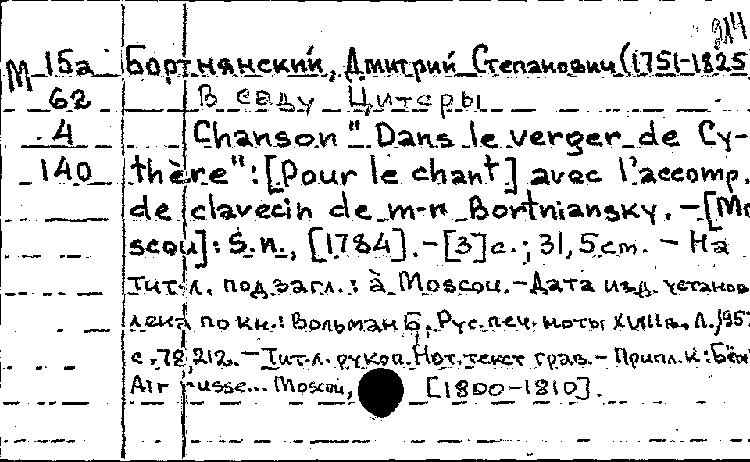 914
М 15а Бортнянский, Дмитрий Степанович (1751-1825
62 В саду Цитеры
4 Chanson "Dans le verger de Cy-
140 thère": [Pour le chant] avec l'accomp.
de clavecin de m-r Bortniansky. – [Mo
scou]: S.n., [1784]. – [3]с.; 31,5cm. – На
тит.л. под загл.: à Moscou. – Дата изд. установ
лена по кн.: Вольман Б. Рус. печ. ноты XVIII в. Л., 1957
с. 78, 212. – Тит.л. рукоп. Нот. текст грав. – Припл. к:
Air russe... Moscou, [1800-1810].